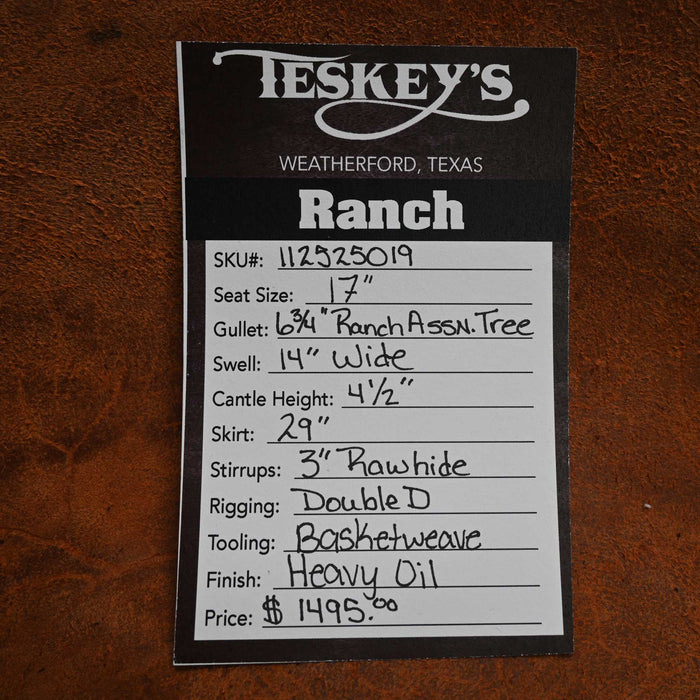 TESKEY'S
WEATHERFORD, TEXAS
Ranch
SKU#: 112525019
Seat Size: 17"
Gullet: 6 3/4" Ranch Assn. Tree
Swell: 14" Wide
Cantle Height: 4 1/2"
Skirt: 29"
Stirrups: 3" Rawhide
Rigging: Double D
Tooling: Basketweave
Finish: Heavy Oil
Price: $ 1495.00